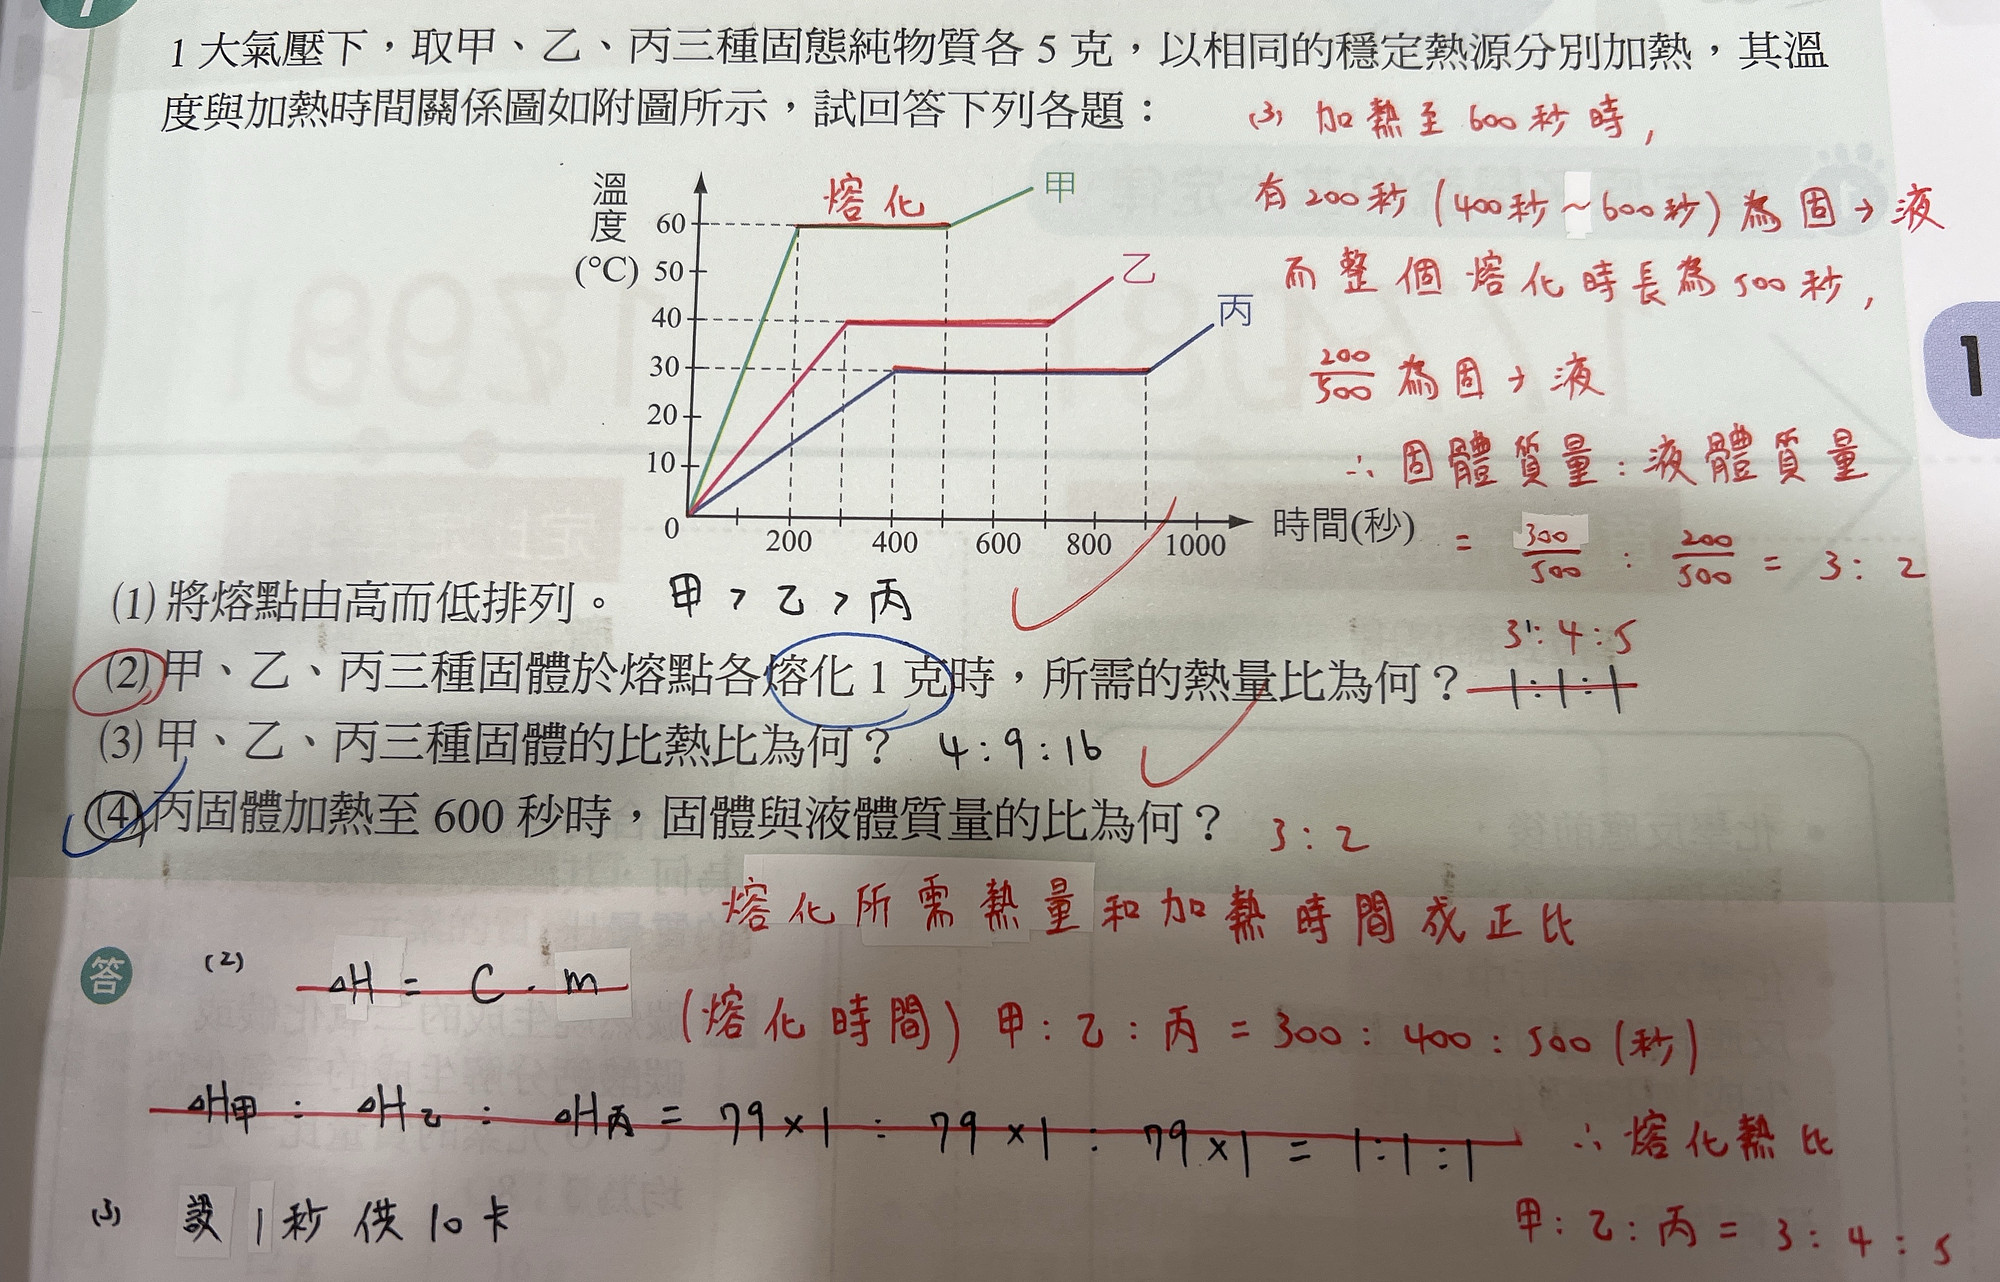 1 大氣壓下，取甲、乙、丙三種固態純物質各 5 克，以相同的穩定熱源分別加熱，其溫
度與加熱時間關係圖如附圖所示，試回答下列各題：
(3) 加熱至 600 秒時，
有 200 秒 (400秒～600秒) 為固→液
而整個熔化時長為 500 秒，
200/500 為固→液
∴ 固體質量：液體質量
= 300/500 : 200/500 = 3 : 2
溫度(°C)
60
50
40
30
20
10
0
200 400 600 800 1000
時間(秒)
熔化
甲
乙
丙
1
(1) 將熔點由高而低排列。 甲 > 乙 > 丙
3 : 4 : 5
(2) 甲、乙、丙三種固體於熔點各熔化 1 克時，所需的熱量比為何？ 1:1:1
(3) 甲、乙、丙三種固體的比熱比為何？ 4:9:16
(4) 丙固體加熱至 600 秒時，固體與液體質量的比為何？ 3:2
熔化所需熱量和加熱時間成正比
答
(2) △H = C · m
(熔化時間) 甲：乙：丙 = 300 : 400 : 500 (秒)
△H甲 : △H乙 : △H丙 = 79×1 : 79×1 : 79×1 = 1:1:1
∴ 熔化熱比
甲：乙：丙 = 3 : 4 : 5
(3) 設 1 秒供 10 卡